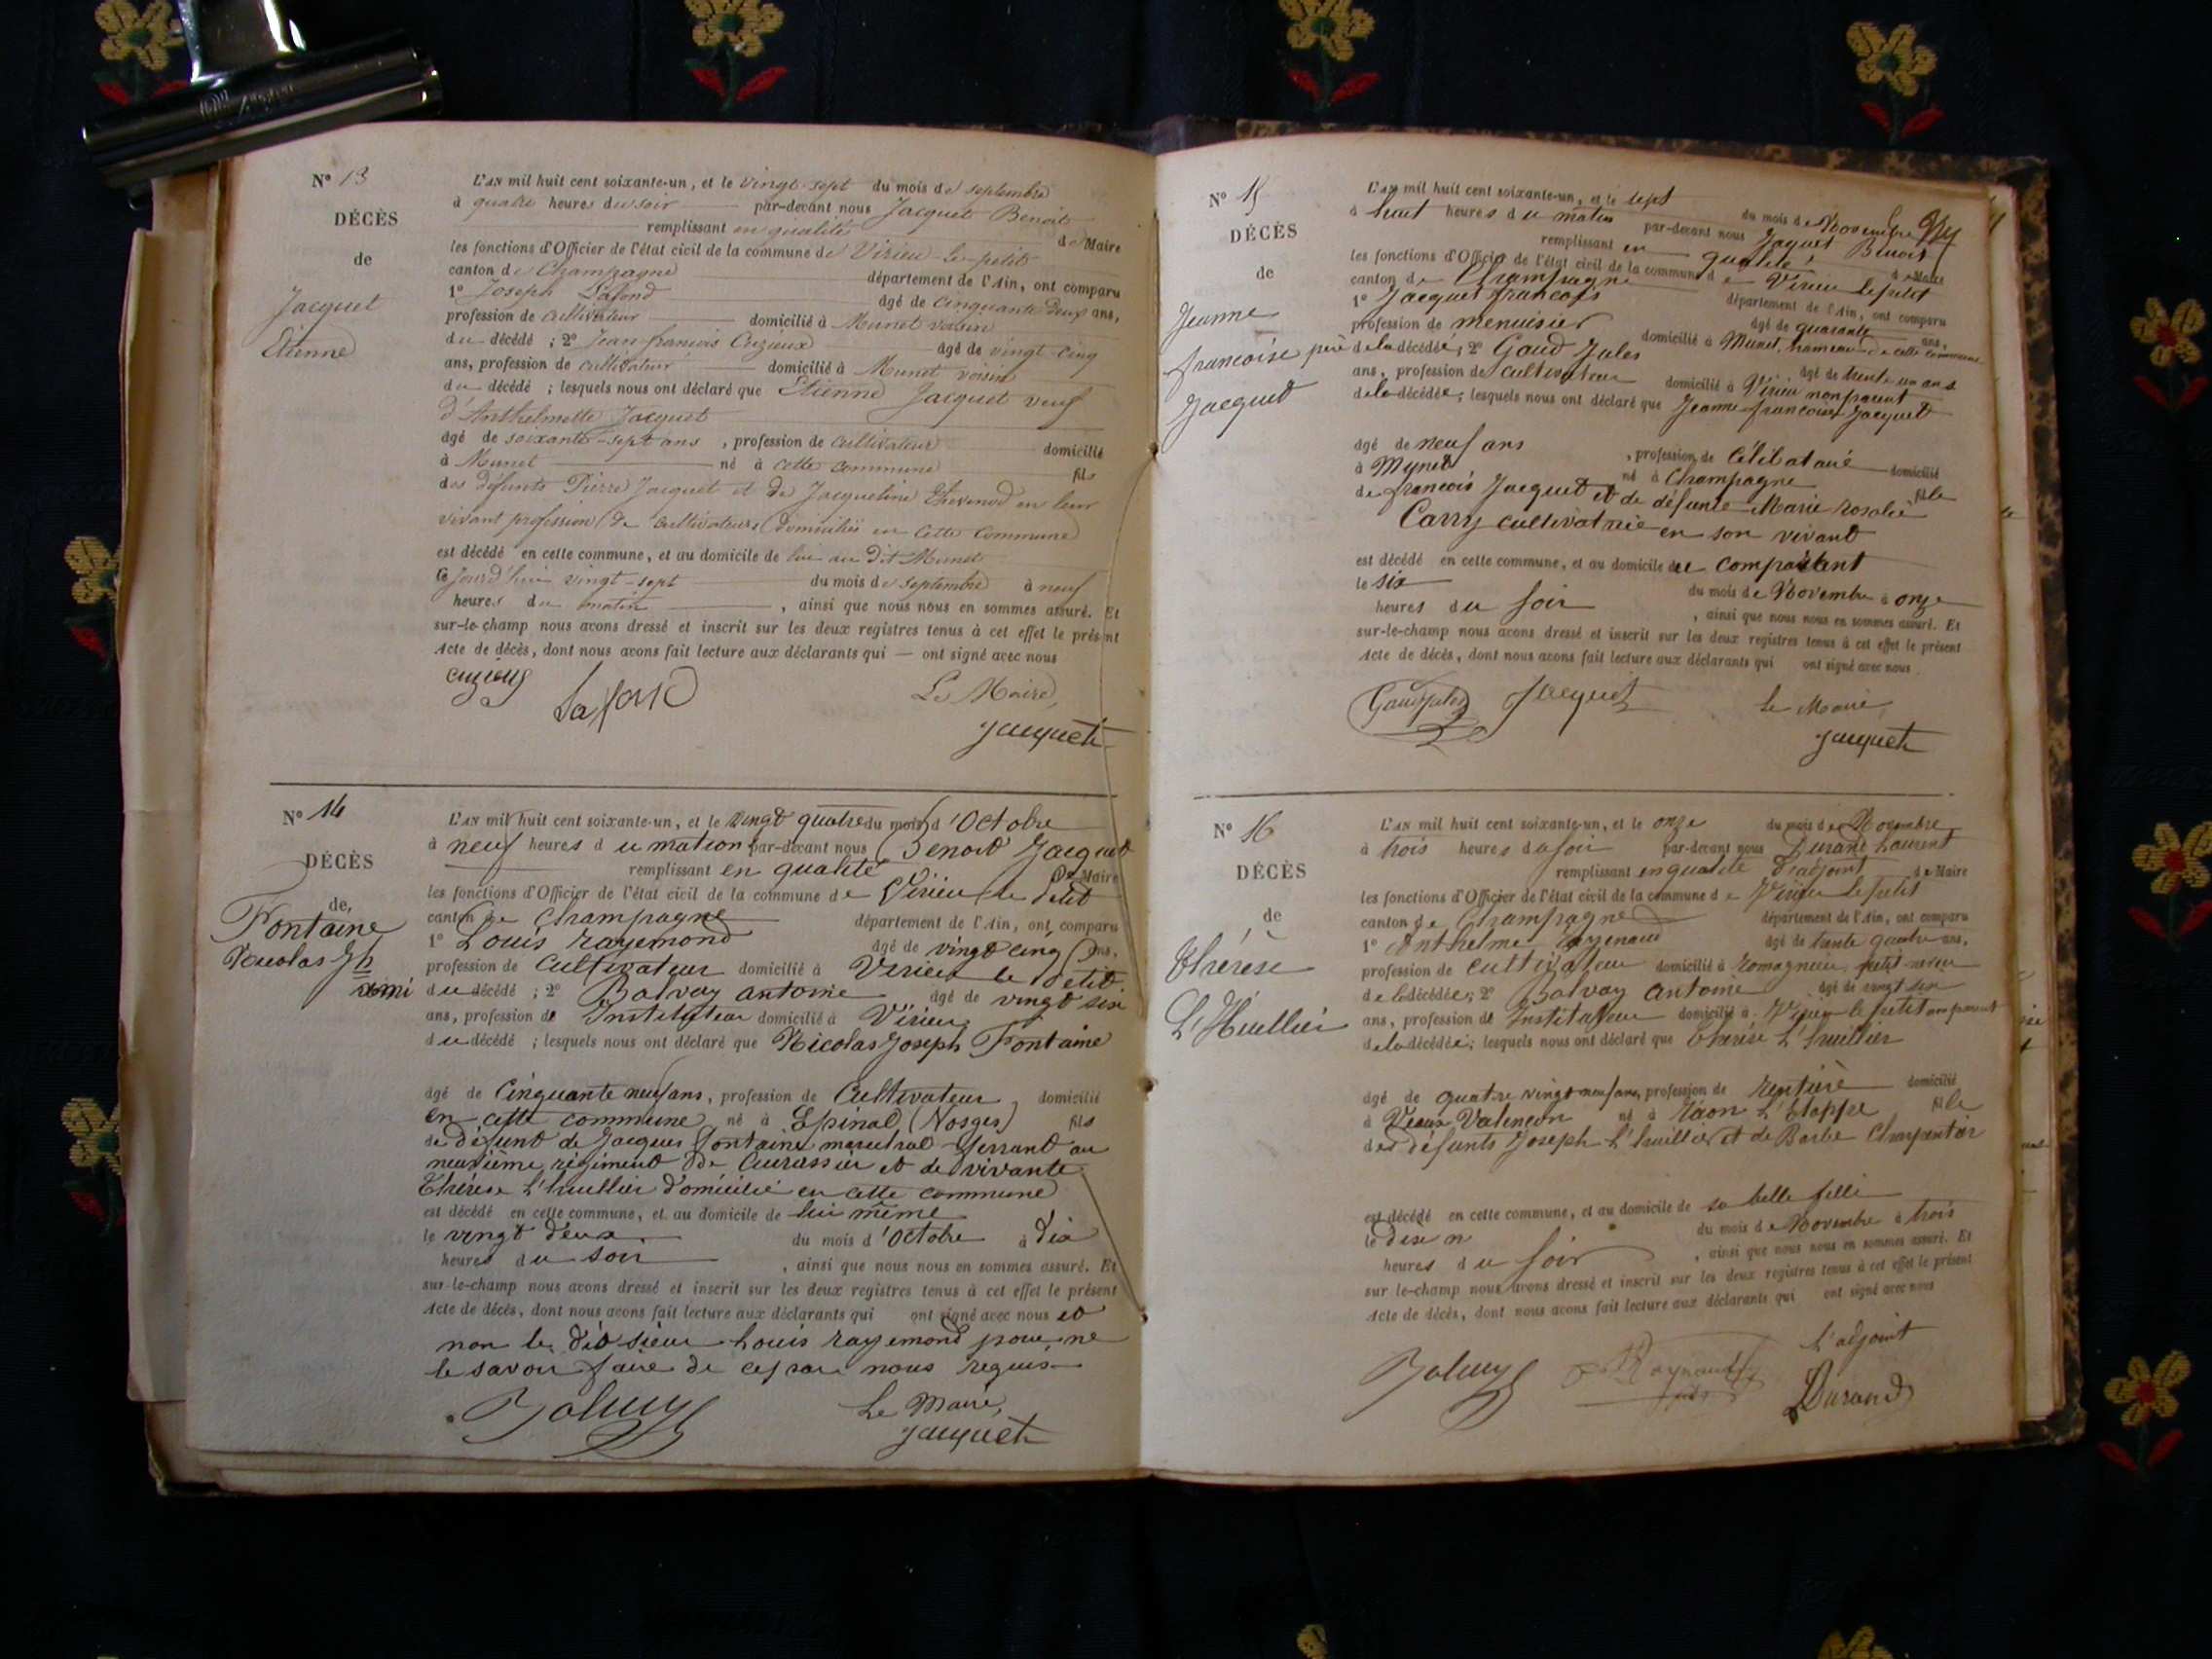 N° 13
DÉCÈS
de
Jacquet
Etienne
L'AN mil huit cent soixante-un, et le vingt-sept du mois de septembre
à quatre heures du soir par-devant nous Jacquet Benoit
remplissant en qualité de Maire
les fonctions d'Officier de l'état civil de la commune de Virieu-le-petit
canton de Champagne département de l'Ain, ont comparu
1° Joseph Lafond âgé de cinquante deux ans,
profession de cultivateur domicilié à Munet voisin
du décédé ; 2° Jean françois Cuzieux âgé de vingt cinq
ans, profession de cultivateur domicilié à Munet voisin
du décédé ; lesquels nous ont déclaré que Etienne Jacquet veuf
d'Anthelmette Jacquet
âgé de soixante-sept ans , profession de cultivateur domicilié
à Munet né à cette commune fils
des défunts Pierre Jacquet et de Jacqueline Thevenod en leur
vivant profession de cultivateurs domiciliés en cette commune
est décédé en cette commune, et au domicile de lui au dit Munet
le jourd'hui vingt-sept du mois de septembre à neuf
heures du matin , ainsi que nous nous en sommes assuré. Et
sur-le-champ nous avons dressé et inscrit sur les deux registres tenus à cet effet le présent
Acte de décès, dont nous avons fait lecture aux déclarants qui — ont signé avec nous
Lafond Le Maire,
Jacquet
N° 14
DÉCÈS
de
Fontaine
Nicolas Jh
L'AN mil huit cent soixante-un, et le vingt quatre du mois d'Octobre
à neuf heures du mation par-devant nous Benoit Jacquet
remplissant en qualité de Maire
les fonctions d'Officier de l'état civil de la commune de Virieu le Petit
canton de Champagne département de l'Ain, ont comparu
1° Louis rayemond âgé de vingt cinq ans,
profession de Cultivateur domicilié à Virieu le Petit
du décédé ; 2° Balvay antoine âgé de vingt six
ans, profession de Instituteur domicilié à Virieu
du décédé ; lesquels nous ont déclaré que Nicolas Joseph Fontaine
âgé de Cinquante neuf ans, profession de Cultivateur domicilié
en cette commune né à Epinal (Vosges) fils
de défunt de Jacques fontaine marechal ferrant au
neuvième régiment de Cuirassier et de vivante
Thérèse L'huillier domicilié en cette commune
est décédé en cette commune, et au domicile de lui même
le vingt deux du mois d'Octobre à dix
heures du soir , ainsi que nous nous en sommes assuré. Et
sur-le-champ nous avons dressé et inscrit sur les deux registres tenus à cet effet le présent
Acte de décès, dont nous avons fait lecture aux déclarants qui ont signé avec nous et
non le dit sieur Louis rayemond pour ne
le savoir faire de ce par nous requis
Balvay Le Maire,
Jacquet
N° 15
DÉCÈS
de
Jeanne
francoise
Jacquet
L'AN mil huit cent soixante-un, et le sept du mois de Novembre
à huit heures du matin par-devant nous Jaquet Benoit
remplissant en qualité de Maire
les fonctions d'Officier de l'état civil de la commune de Virieu le petit
canton de Champagne département de l'Ain, ont comparu
1° Jacquet francois âgé de quarante ans,
profession de menuisier domicilié à Munet, hameau de cette commune
père de la décédée ; 2° Gaud Jules âgé de trente un ans
ans, profession de cultivateur domicilié à Virieu non parent
de la décédée ; lesquels nous ont déclaré que Jeanne francoise Jacquet
âgé de neuf ans , profession de Célibataire domicilié
à Mynet né à Champagne fille
de francois Jacquet et de défunte Marie rosalie
Carry cultivatrice en son vivant
est décédé en cette commune, et au domicile du comparant
le six du mois de Novembre à onze
heures du soir , ainsi que nous nous en sommes assuré. Et
sur-le-champ nous avons dressé et inscrit sur les deux registres tenus à cet effet le présent
Acte de décès, dont nous avons fait lecture aux déclarants qui ont signé avec nous
Gaud Jules Jacquet le Maire
Jacquet
N° 16
DÉCÈS
de
Thérèse
L'Huillier
L'AN mil huit cent soixante-un, et le onze du mois de Novembre
à trois heures du soir par-devant nous Durand Laurent
remplissant en qualité d'adjoint de Maire
les fonctions d'Officier de l'état civil de la commune de Virieu le petit
canton de Champagne département de l'Ain, ont comparu
1° Anthelme âgé de trente quatre ans,
profession de cultivateur domicilié à romagnieu petit-neveu
de la décédée ; 2° Balvay antoine âgé de vingt six
ans, profession de Instituteur domicilié à Virieu le petit non parent
de la décédée ; lesquels nous ont déclaré que Thérèse L'huillier
âgé de quatre vingt neuf ans, profession de rentière domicilié
à né à raon L'Etappe fille
des défunts Joseph L'huillier et de Barbe Charpentier
est décédé en cette commune, et au domicile de sa belle fille
le dix du mois de Novembre à trois
heures du soir , ainsi que nous nous en sommes assuré. Et
sur-le-champ nous avons dressé et inscrit sur les deux registres tenus à cet effet le présent
Acte de décès, dont nous avons fait lecture aux déclarants qui ont signé avec nous
L'adjoint
Balvay Durand